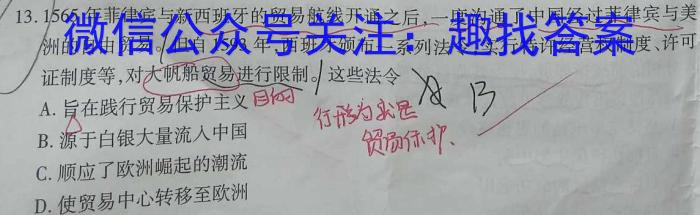 13. 1565年菲律宾与新西班牙的贸易航线开通之后,一度沟通了中国经过菲律宾与美
洲的自由贸易。
微信公众号关注：趣找答案
证制度等,对大帆船贸易进行限制。这些法令
A. 旨在践行贸易保护主义 目的
B. 源于白银大量流入中国
C. 顺应了欧洲崛起的潮流
D. 使贸易中心转移至欧洲
B
行 为 是
贸易保护.